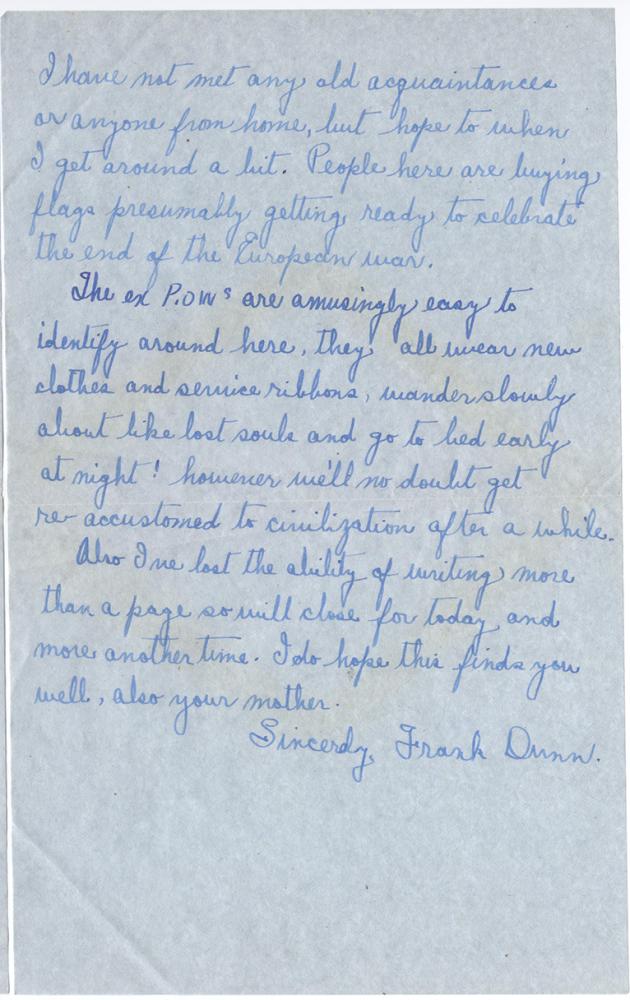 I have not met any old acquaintances
or anyone from home, but hope to when
I get around a bit. People here are buying
flags presumably getting ready to celebrate
the end of the European war.
The ex P.OWs are amusingly easy to
identify around here, they all wear new
clothes and service ribbons, wander slowly
about like lost souls and go to bed early
at night! however we'll no doubt get
re-accustomed to civilization after a while.
Also I've lost the ability of writing more
than a page so will close for today and
more another time. I do hope this finds you
well, also your mother.
Sincerely, Frank Dunn.